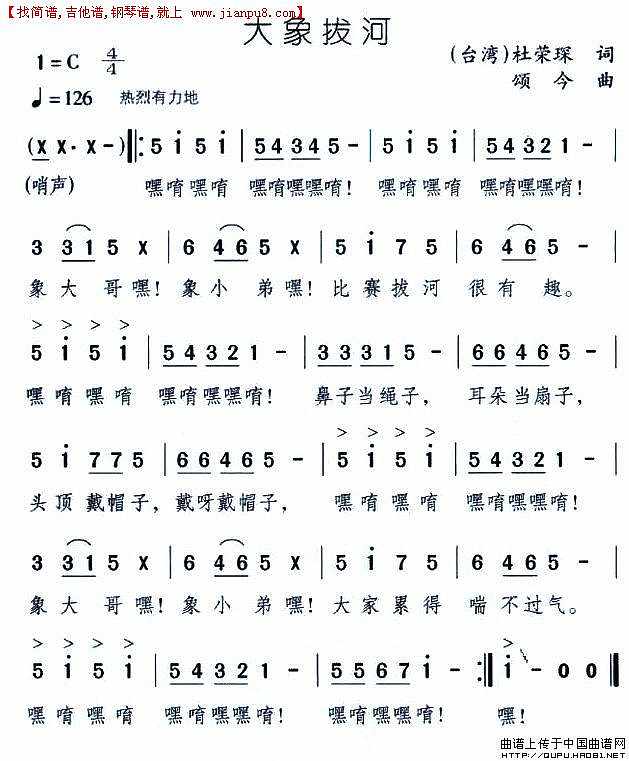 【找简谱,吉他谱,钢琴谱,就上 www.jianpu8.com】
大象拔河
1=C 4/4 （台湾)杜荣琛 词
颂今 曲
♩=126 热烈有力地
(X X· X -) 𝄆 5 i 5 i | 5 4 3 4 5 - | 5 i 5 i | 5 4 3 2 1 - |
(哨声) 嘿唷嘿唷 嘿唷嘿嘿唷! 嘿唷嘿唷 嘿唷嘿嘿唷!
3 3 1 5 X | 6 4 6 5 X | 5 i 7 5 | 6 4 6 5 - |
象大哥嘿! 象小弟嘿! 比赛拔河 很有趣。
> > > >
5 i 5 i | 5 4 3 2 1 - | 3 3 3 3 5 - | 6 6 4 6 5 - |
嘿唷嘿唷 嘿唷嘿嘿唷! 鼻子当绳子, 耳朵当扇子,
> > > >
5 i 7 7 5 | 6 6 4 6 5 - | 5 i 5 i | 5 4 3 2 1 - |
头顶戴帽子, 戴呀戴帽子, 嘿唷嘿唷 嘿唷嘿嘿唷!
3 3 1 5 X | 6 4 6 5 X | 5 i 7 5 | 6 4 6 5 - |
象大哥嘿! 象小弟嘿! 大家累得 喘不过气。
> > > > >
5 i 5 i | 5 4 3 2 1 - | 5 5 6 7 i - 𝄇 i - 0 0 ‖
嘿唷嘿唷 嘿唷嘿嘿唷! 嘿唷嘿嘿唷! 嘿!
曲谱上传于中国曲谱网
HTTP://QUPU.HAO81.NET